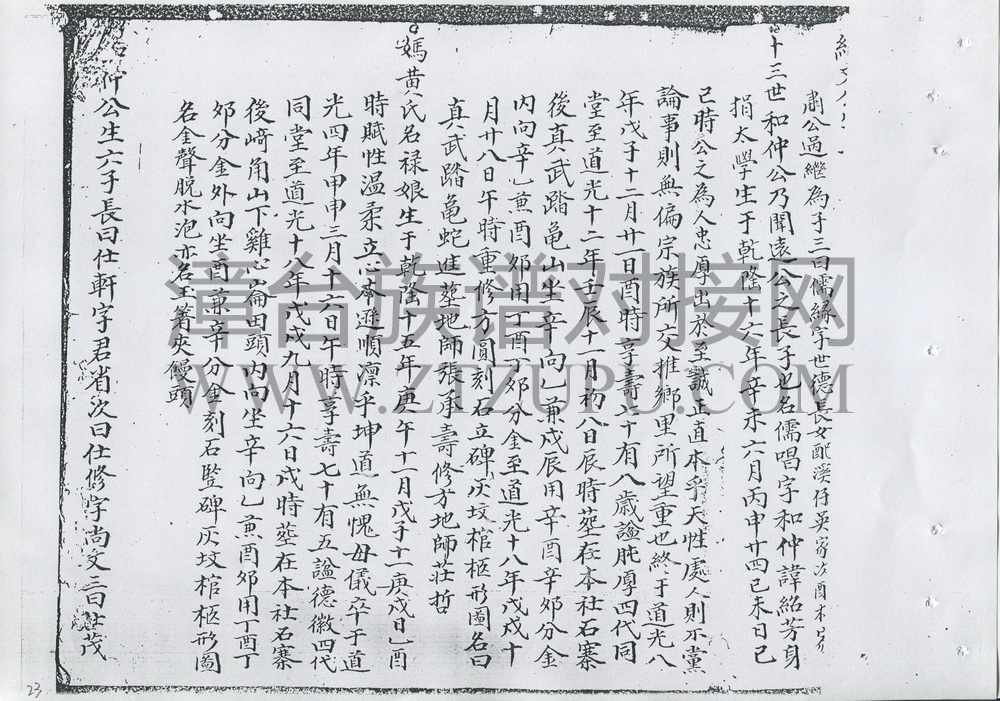 肅公過継為子三曰儒絲字世德長女配溪仔吳家次酉本
十三世和仲公乃聞遠公之長子也名儒唱字和仲諱紹芳身
捐太學生于乾隆十六年辛未六月丙申廿四己未日己
己時公之為人忠厚出於至誠正直本乎天性處人則不黨
論事則無偏宗族所交推鄉里所望重也終于道光八
年戊子十二月廿一日酉時享壽六十有八歲諡肫厚四代同
堂至道光十二年壬辰十一月初八日辰時塟在本社石寨
後真武踏亀山坐辛向乙兼戌辰用辛酉辛卯分金
內向辛乙兼酉卯用丁酉丁卯分金至道光十八年戊戌十
月廿八日午時重修方圓刻石立碑灰坟棺柩形圖名曰
真武踏亀蛇進塟地師張承壽修方地師莊哲
媽黃氏名祿娘生于乾隆十五年庚午十一月戊子十一庚戌日乙酉
時賦性溫柔立心齊遜順凛乎坤道無愧母儀卒于道
光四年甲申三月十六日午時享壽七十有五諡德徽四代
同堂至道光十八年戊戌九月十六日戌時塟在本社石寨
後崎角山下雞心崙田頭內向坐辛向乙兼酉卯用丁酉丁
卯分金外向坐酉兼辛分金刻石竪碑灰坟棺柩形圖
名金聲脫水泡亦名玉箸夾饅頭
仲公生六子長曰仕軒字君省次曰仕修字尚文三曰仕茂
漳台族谱对接网
WWW.ZTZUPU.COM
23